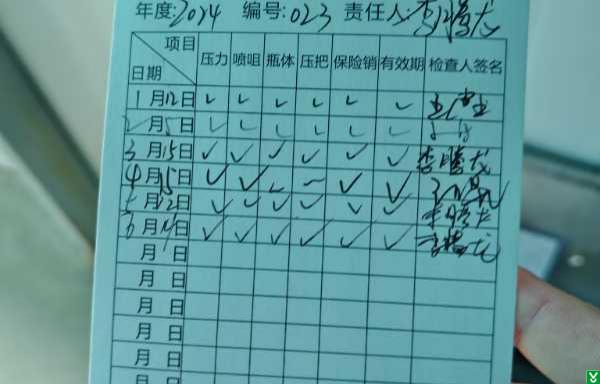 年度:2024 编号:023 责任人:李腾龙
项目 日期 压力 喷咀 瓶体 压把 保险销 有效期 检查人签名
1月12日 ✓ ✓ ✓ ✓ ✓ ✓
2月5日 ✓ ✓ ✓ ✓ ✓ ✓
3月15日 ✓ ✓ ✓ ✓ ✓ ✓ 李腾龙
4月15日 ✓ ✓ ✓ ✓ ✓ ✓
5月12日 ✓ ✓ ✓ ✓ ✓ ✓ 李腾龙
6月日 ✓ ✓ ✓ ✓ ✓ ✓ 李腾龙
月 日
月 日
月 日
月 日
月 日
月 日